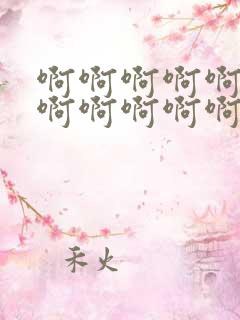 啊啊啊啊啊
啊啊啊啊啊
禾火